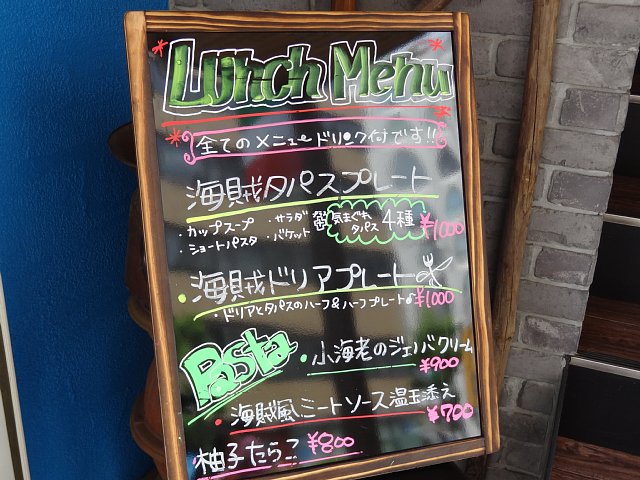 Lunch Menu
全てのメニュードリンク付です!!
海賊タパスプレート
・カップスープ ・サラダ
・ショートパスタ ・バケット
気まぐれタパス 4種 ¥1000
・海賊ドリアプレート
・ドリアとタパスのハーフ&ハーフプレート♪ ¥1000
Pasta
・小海老のジェノバクリーム
¥900
・海賊風ミートソース温玉添え
¥700
柚子たらこ ¥800